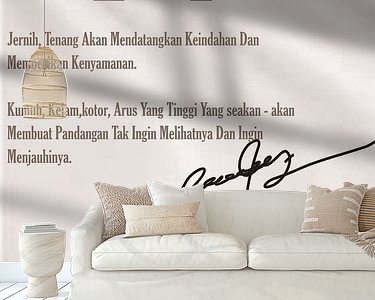 Jernih, Tenang Akan Mendatangkan Keindahan Dan
Kenyamanan.
Kumuh, Keram,kotor, Arus Yang Tinggi Yang seakan - akan
Membuat Pandangan Tak Ingin Melihatnya Dan Ingin
Menjauhinya.